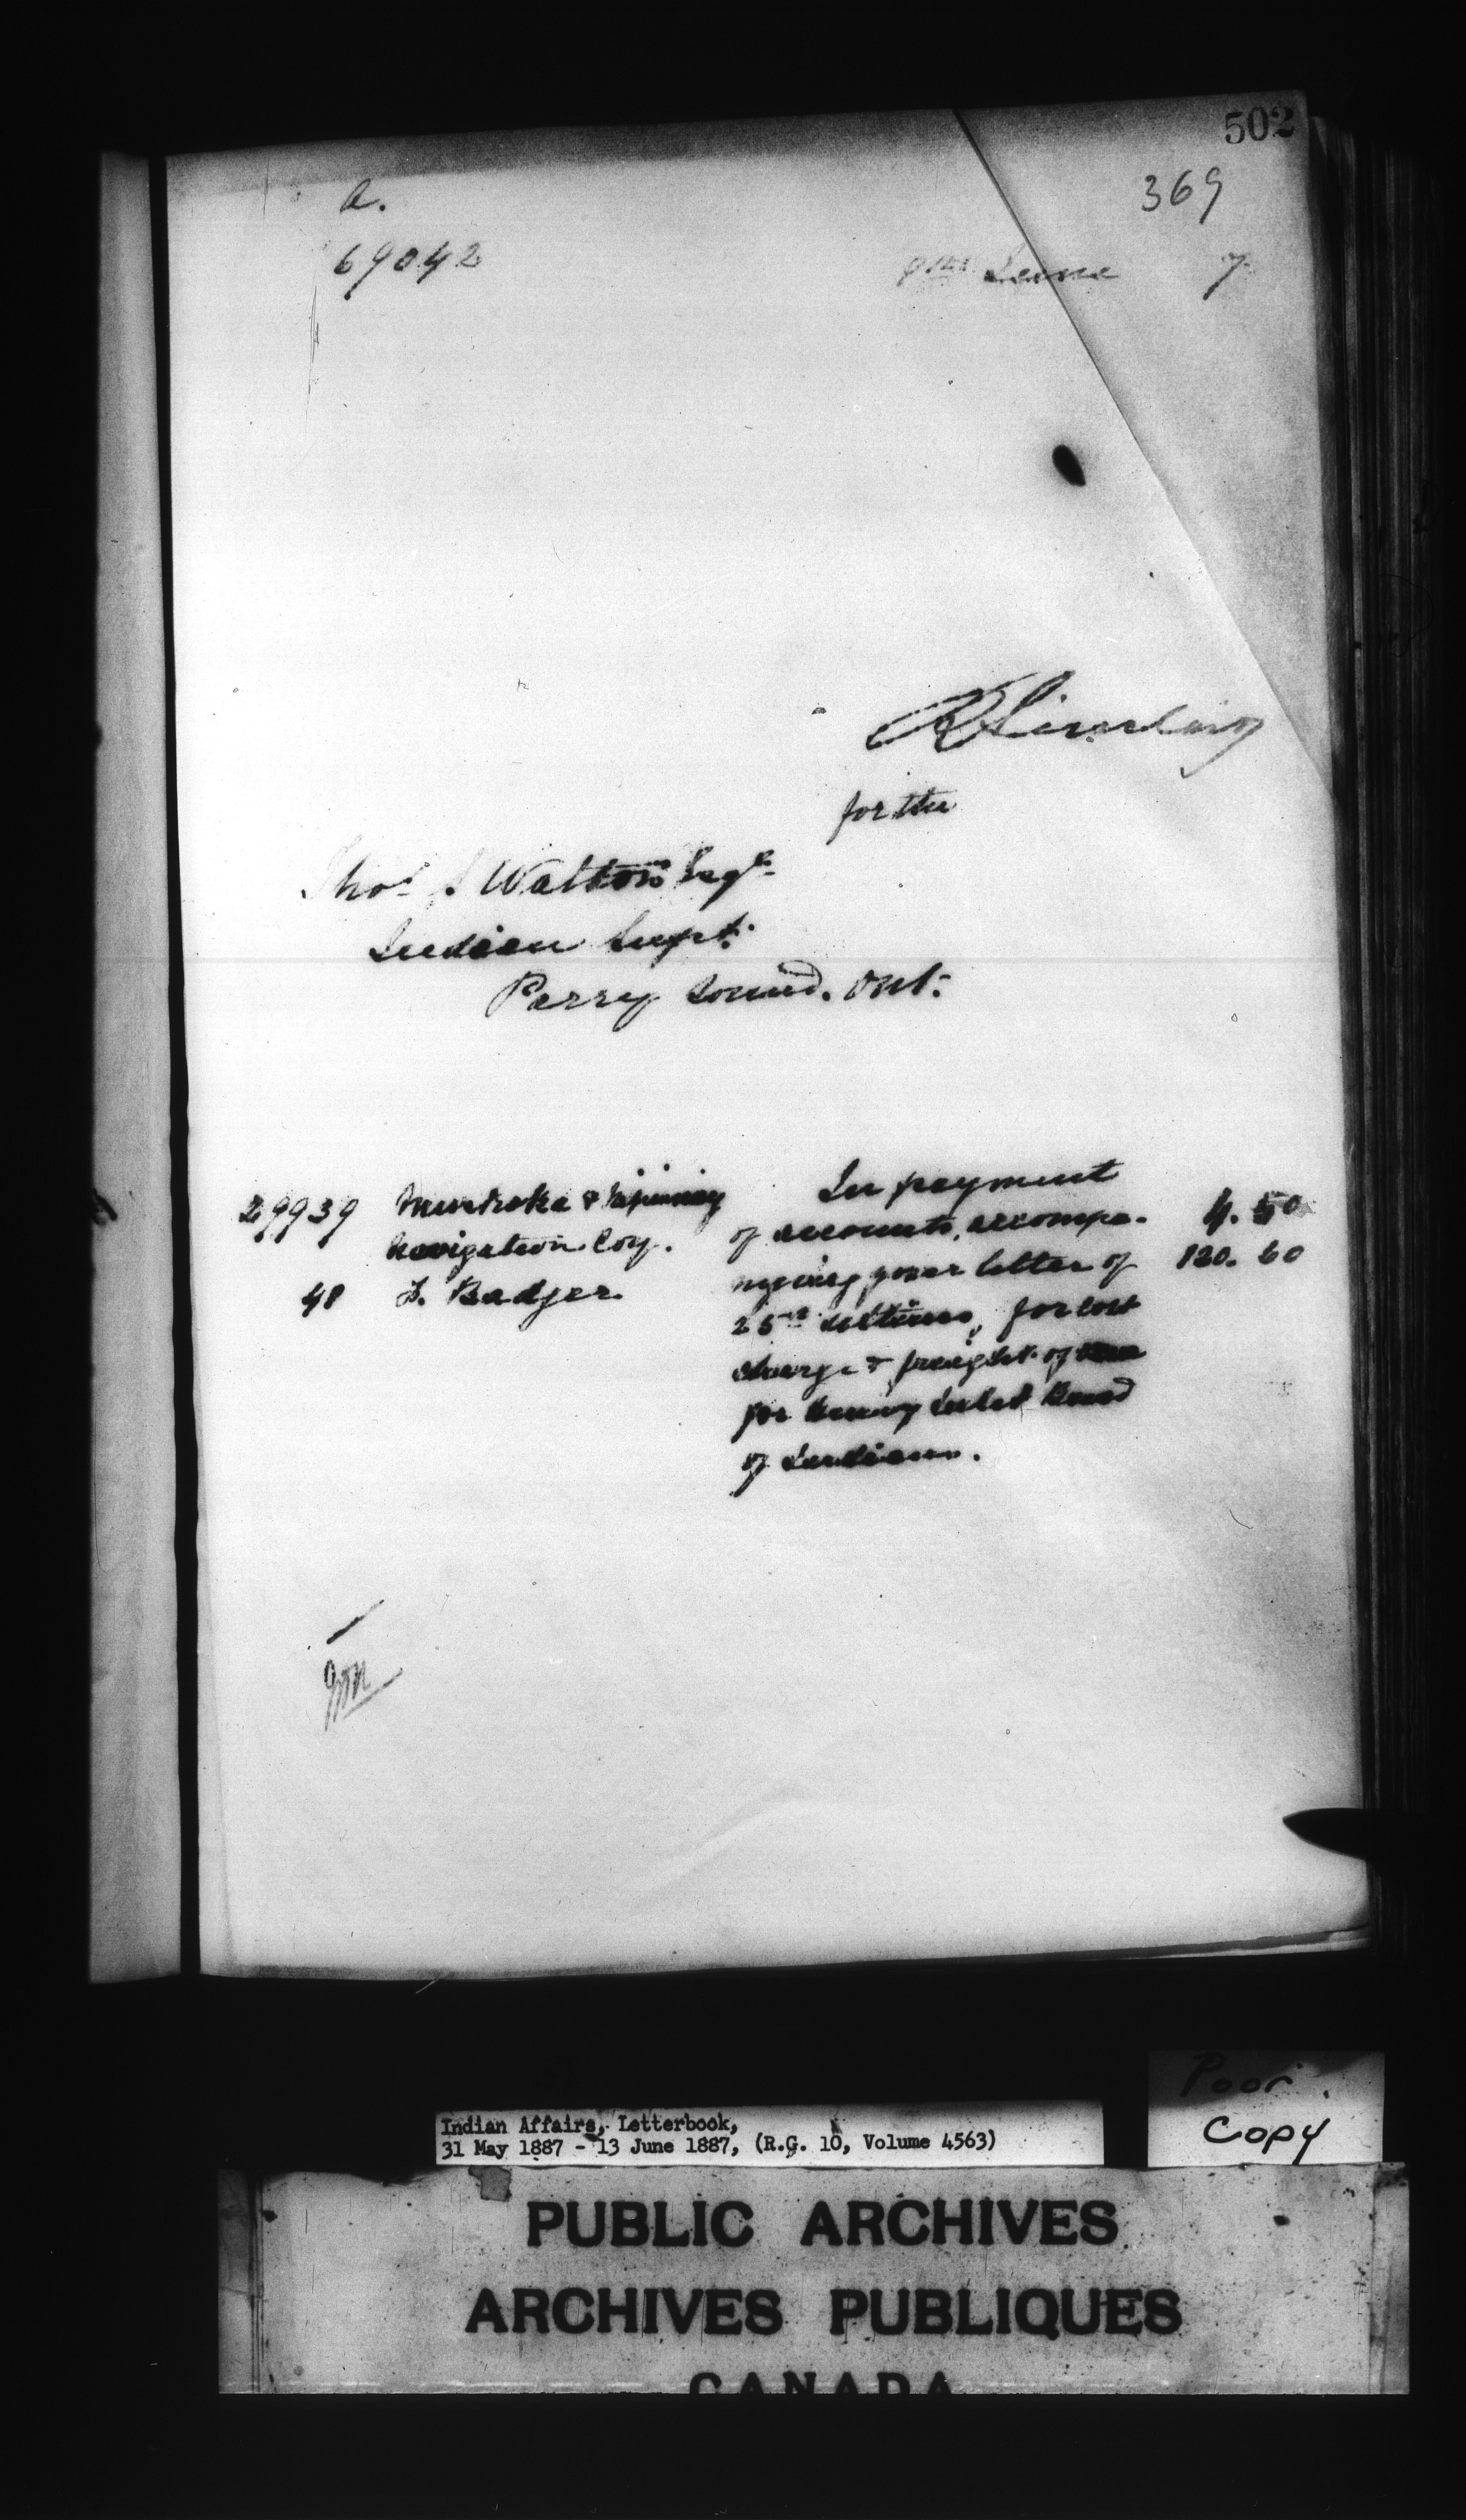 502
a.
369
69042
9th June 7
R Sinclair
for the
Thos. S Walton Esqr.
Indian Supt.
Parry Sound. Ont.
29939 Muskoka & Nipissing In payment 4. 50
Navigation Coy. of accounts, accompa-
48 F. Badger nying your letter of 120. 60
25th ultimo, for cost
charge & freight of
for Henvey Inlet Band
of Indians.
Poor
Copy
Indian Affairs, Letterbook,
31 May 1887 - 13 June 1887, (R.G. 10, Volume 4563)
PUBLIC ARCHIVES
ARCHIVES PUBLIQUES
CANADA